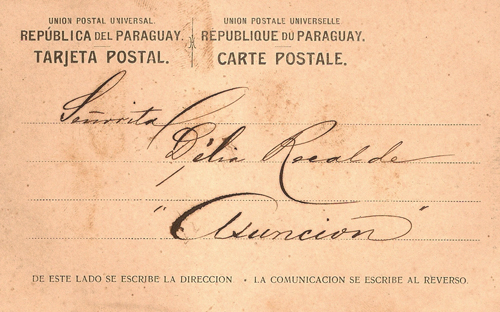 UNION POSTAL UNIVERSAL. UNION POSTALE UNIVERSELLE
REPÚBLICA DEL PARAGUAY. REPUBLIQUE DU PARAGUAY.
TARJETA POSTAL. CARTE POSTALE.
Señorita
Délia Recalde
"Asuncion"
DE ESTE LADO SE ESCRIBE LA DIRECCION. • LA COMUNICACION SE ESCRIBE AL REVERSO.